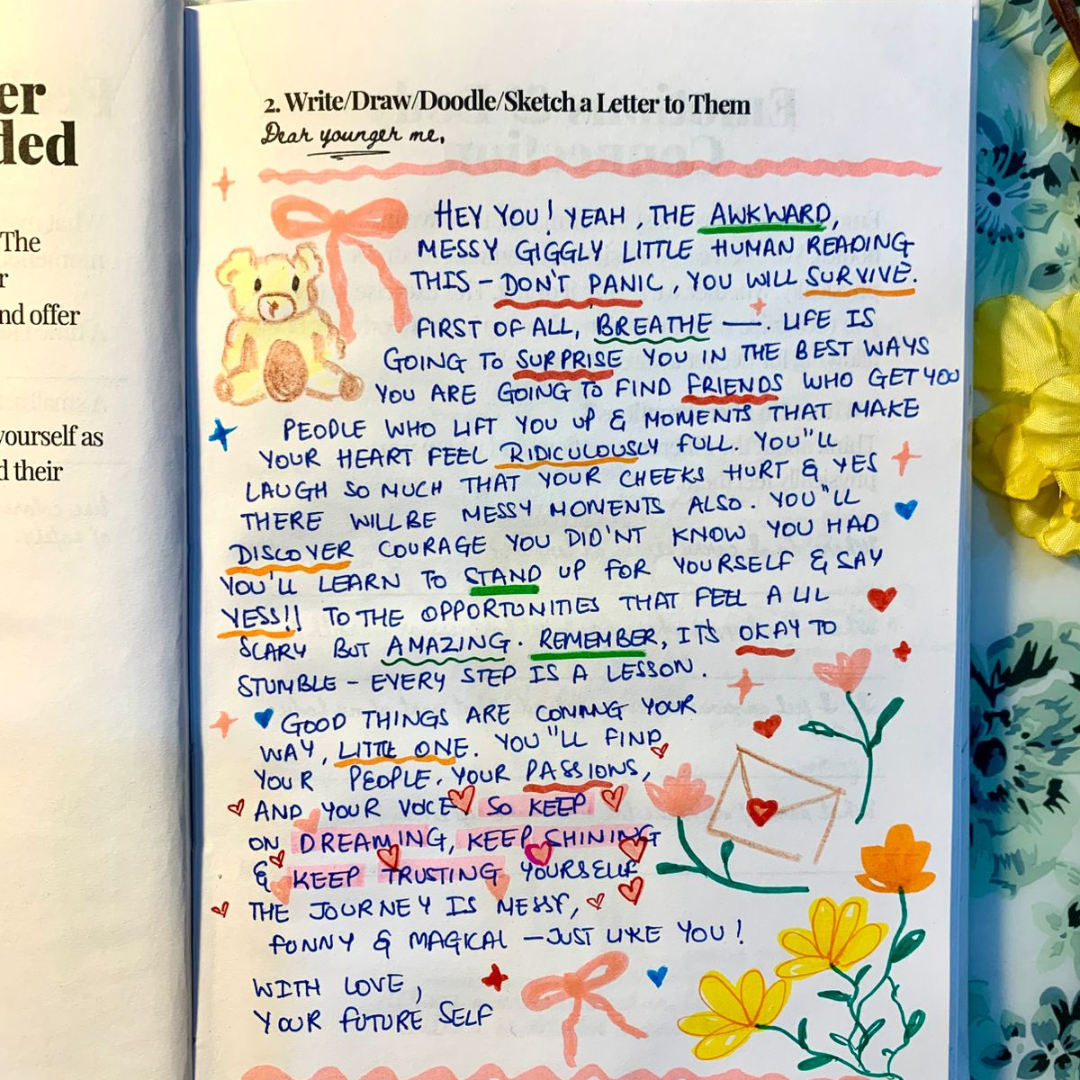 er
ded
The
r
nd offer
yourself as
d their
2. Write/Draw/Doodle/Sketch a Letter to Them
Dear younger me,
HEY YOU! YEAH, THE AWKWARD,
MESSY GIGGLY LITTLE HUMAN READING
THIS - DON'T PANIC, YOU WILL SURVIVE.
FIRST OF ALL, BREATHE —. LIFE IS
GOING TO SURPRISE YOU IN THE BEST WAYS
YOU ARE GOING TO FIND FRIENDS WHO GET YOU
PEOPLE WHO LIFT YOU UP & MOMENTS THAT MAKE
YOUR HEART FEEL RIDICULOUSLY FULL. YOU"LL
LAUGH SO MUCH THAT YOUR CHEEKS HURT & YES
THERE WILL BE MESSY MOMENTS ALSO. YOU"LL
DISCOVER COURAGE YOU DID'NT KNOW YOU HAD
YOU'LL LEARN TO STAND UP FOR YOURSELF & SAY
YESS!! TO THE OPPORTUNITIES THAT FEEL A LIL
SCARY BUT AMAZING. REMEMBER, IT'S OKAY TO
STUMBLE - EVERY STEP IS A LESSON.
GOOD THINGS ARE COMING YOUR
WAY, LITTLE ONE. YOU"LL FIND
YOUR PEOPLE, YOUR PASSIONS,
AND YOUR VOICE, SO KEEP
ON DREAMING, KEEP SHINING
& KEEP TRUSTING YOURSELF
THE JOURNEY IS MESSY,
FUNNY & MAGICAL - JUST LIKE YOU!
WITH LOVE,
YOUR FUTURE SELF